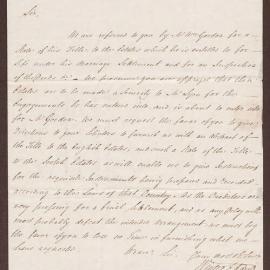 Sir,
We are referred to you by Mr Wm Gordon for a
State of his Title to the Estates which he is entitled to for
Life under his Marriage Settlement and for an Inspection
of the Deeds &c. We presume you are apprized that these
Estates are to be made a Security to Mr for the
Engagements he has entered into and is about to enter into
for Mr Gordon. We must request the favor of you to give
Directions to your to furnish us with an Abstract of
the Title to the English Estates, and such a State of the Title
to the Scotch Estates as will enable us to give Instructions
for the requisite Instruments being prepared and executed
according to the Laws of that Country. As the Creditors are
very pressing for a final Settlement, and as any Delay will
most probably defeat the intended arrangement we must beg
the favor of you to lose no Time in furnishing what we
have requested.
We are Sir,